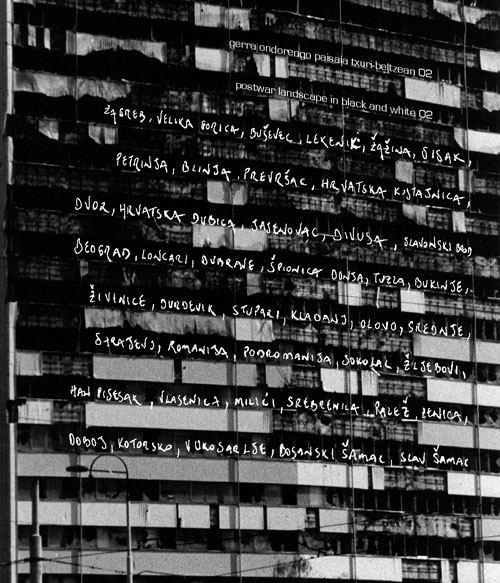 gerra ondorengo paisaia txuri-beltzean 02
postwar landscape in black and white 02
ZAGREB, VELIKA GORICA, BUŠEVEC, LEKENIK, ŽAŽINA, SISAK,
PETRINJA, BLINJA, PREVRŠAC, HRVATSKA KOSTAJNICA,
DVOR, HRVATSKA DUBICA, JASENOVAC, DIVUSA, SLAVONSKI BROD
BEOGRAD, LONCARI, DUBRAVE, ŠPIONICA DONJA, TUZLA, DUKINJE,
ŽIVINICE, DURDEVIK, STUPARI, KLADANJ, OLOVO, SREDNJE,
STRAJEVO, ROMANIJA, PODROMANIJA, SOKOLAC, ŽLJEBOVI,
HAN PIJESAK, VLASENICA, MILICI, SREBRENICA, PALEŽ, ZENICA,
DOBOJ, KOTORSKO, VUKOSAVLJE, BOSANSKI ŠAMAC, SLAV ŠAMAC